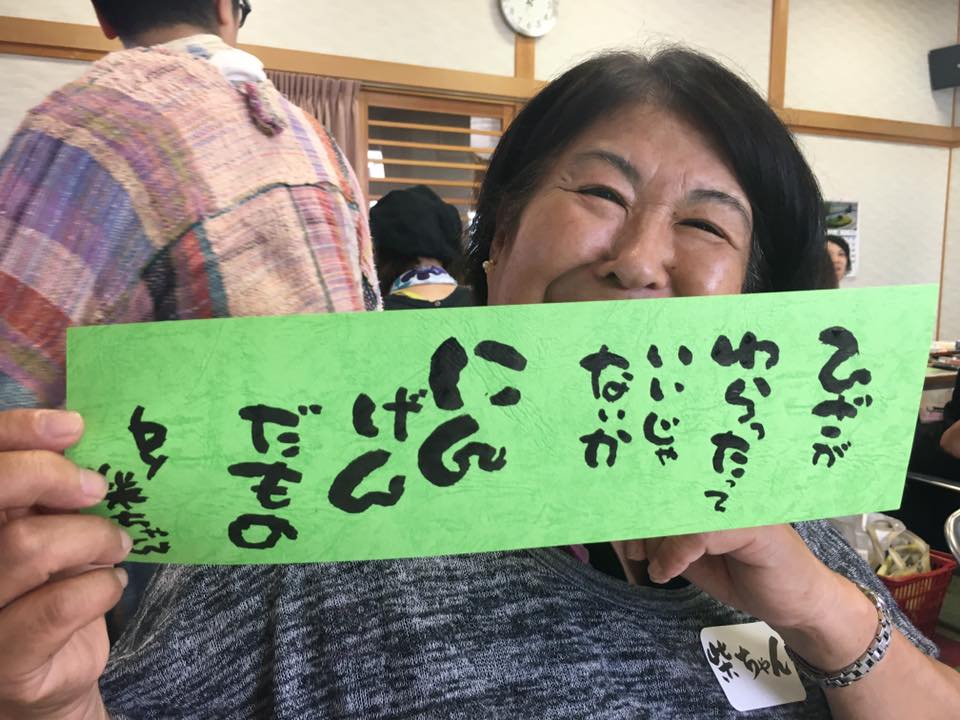 ひざが
わらったって
いいじゃ
ないか
にん
げん
だもの
柴ちゃん